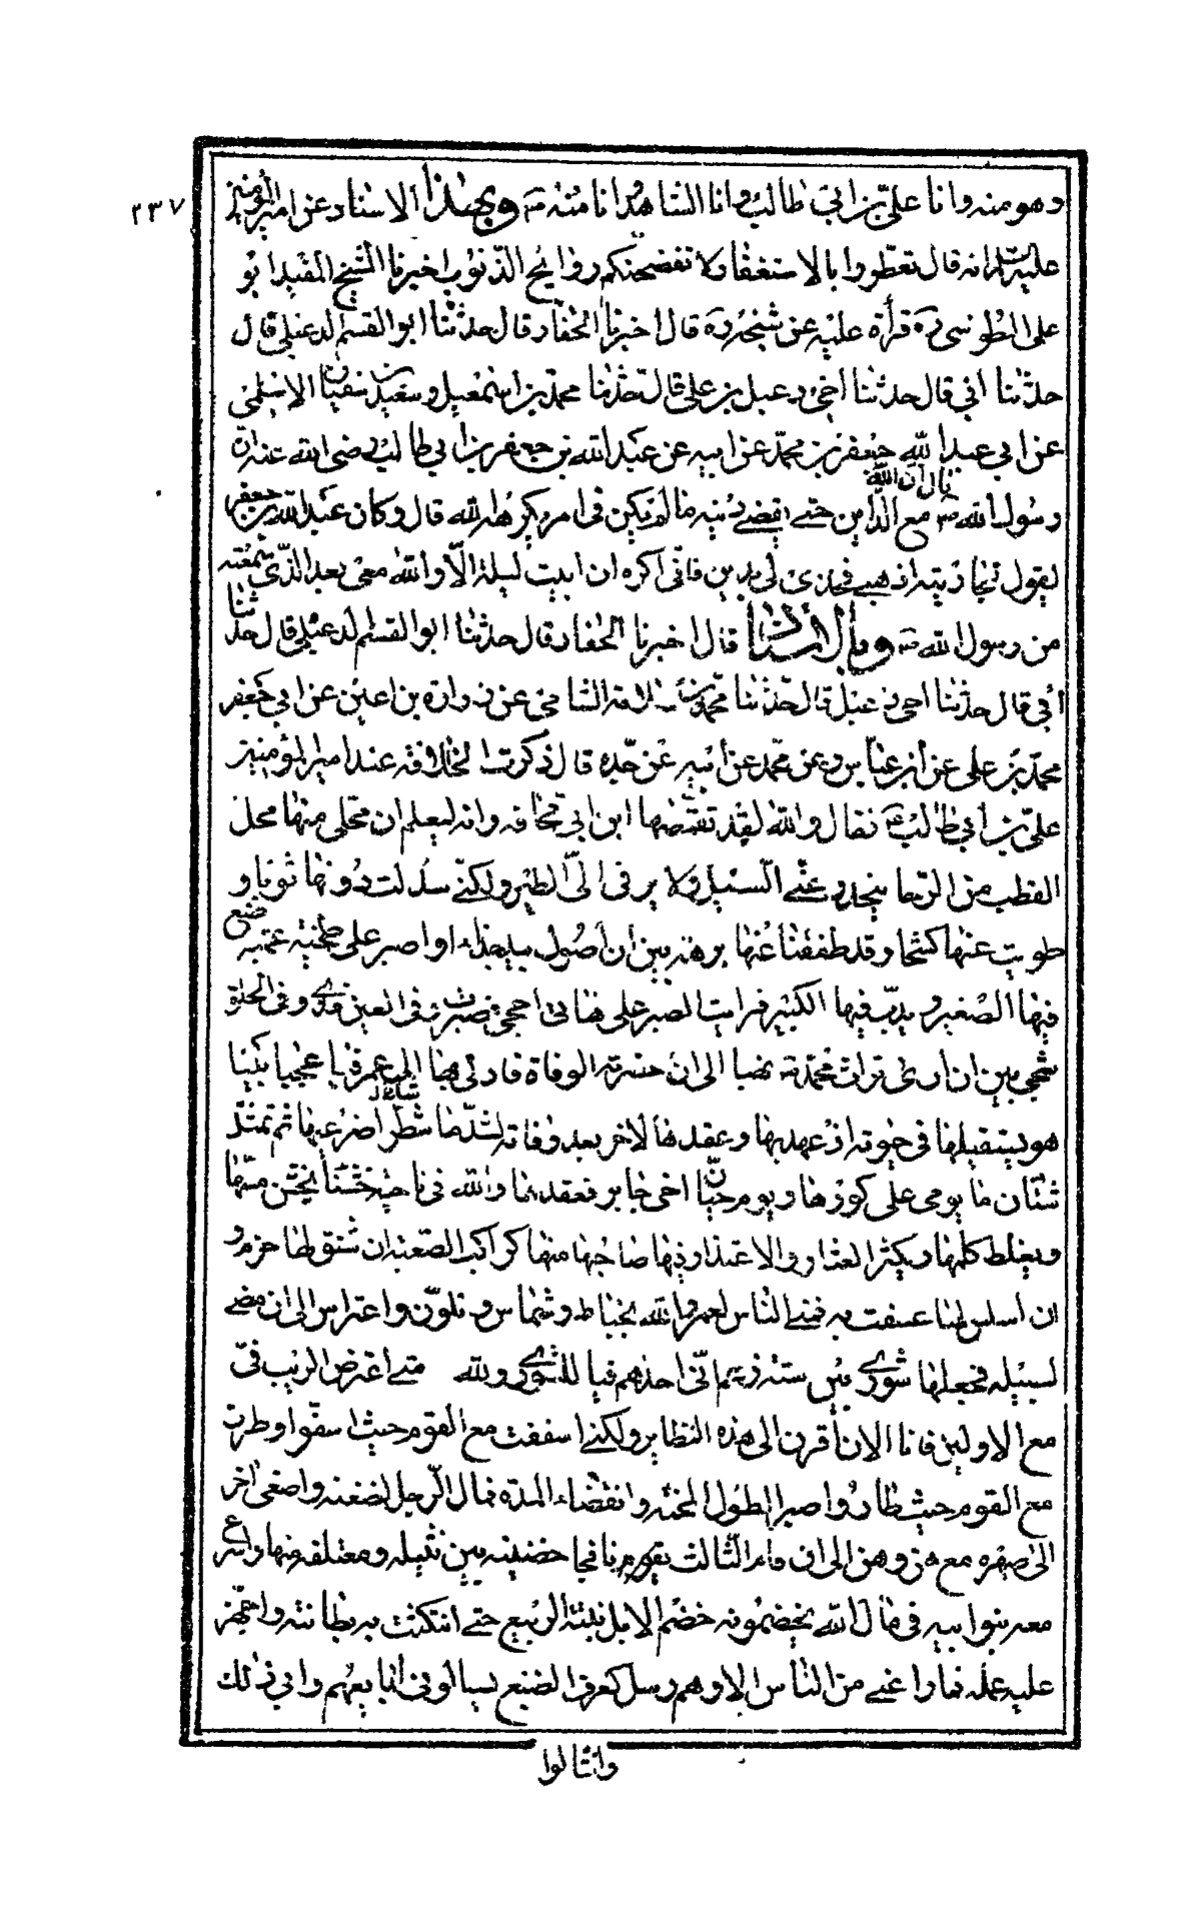 ٢٣٧
وهو منه وانا علي بن ابي طالب وانا الشاهد وانا منه ص وبهذا الاسناد عن امير المؤمنين
عليه السلام انه قال تعطروا بالاستغفار ولا تفضحنكم روائح الذنوب اخبرنا الشيخ المفيد ابو
علي الطوسي ره قرأة عليه عن شيخه ره قال اخبرنا الحفار قال حدثنا ابو القسم الدعبلي قال
حدثنا ابي قال حدثنا اخي دعبل بن علي قال حدثنا محمد بن اسمعيل وسعيد بن سفيان الاسلمي
عن ابي عبد الله جعفر بن محمد عن ابيه عن عبد الله بن جعفر بن ابي طالب رضي الله عنه ان
قال ان الله
رسول الله ص مع الداين حتى يقضي دينه ما لم يكن في امر يكرهه الله قال وكان عبد الله بن جعفر
يقول لخازنه اذهب فخذ لي بدين فاني اكره ان ابيت ليلة الا والله معي بعد الذي سمعته
من رسول الله ص وبالاسناد قال اخبرنا الحفار قال حدثنا ابو القسم الدعبلي قال حدثنا
ابي قال حدثنا اخي دعبل قال حدثنا محمد بن سلامة الشامي عن زرارة بن اعين عن ابي جعفر
محمد بن علي عن ابن عباس وعن محمد عن ابيه عن جده قال ذكرت الخلافة عند امير المؤمنين
علي بن ابي طالب ع فقال والله لقد تقمصها ابن ابي قحافه وانه ليعلم ان محلي منها محل
القطب من الرحا ينحدر عني السيل ولا يرقى الي الطير ولكني سدلت دونها ثوبا و
طويت عنها كشحا وقد طفقنا عنها برهة بين ان اصول بيد جذاء او اصبر على طخية عمية
فيها الصغير ويدب فيها الكبير فرايت الصبر على هاتي احجى فصبرت وفي العين قذى وفي الحلق
شجى بين ان ارى تراث محمد ص نهبا الى ان حضرته الوفاة فادلى بها الى عمر فيا عجبا بينا
هو يستقيلها في حيوته اذ عهد بها وعقدها لاخر بعد وفاته لشد ما شطرا ضرعيها ثم تمثل
شتان ما يومي على كورها ويوم حيان اخي جابر فعقدها والله في ناحية خشناء يخشن مسها
ويغلظ كلمها ويكثر العثار والاعتذار فيها صاحبها منها كراكب الصعبة ان شنق لها خرم و
ان اسلس لها عسفت به فمني الناس لعمر الله بخباط وشماس وتلون واعتراض الى ان مضى
لسبيله فجعلها شورى بين ستة زعم اني احدهم فيا للشورى ولله متى اعترض الريب في
مع الاولين فانا الان اقرن الى هذه النظاير ولكني اسففت مع القوم حيث اسفوا وطرت
مع القوم حيث طاروا صبرا لطول المحنة وانقضاء المدة فمال الرجل لضغنه واصغى اخر
الى صهره مع هن وهن الى ان قام الثالث نافجا حضنيه بين نثيله ومعتلفه منها واسرع
معه بنوا ابيه في مال الله يخضمونه خضم الابل نبتة الربيع حتى انتكثت به بطانته واجهز
عليه عمله فما راعني من الناس الا وهم رسل كعرف الضبع يسالوني ابايعهم وابى ذلك
وانثالوا